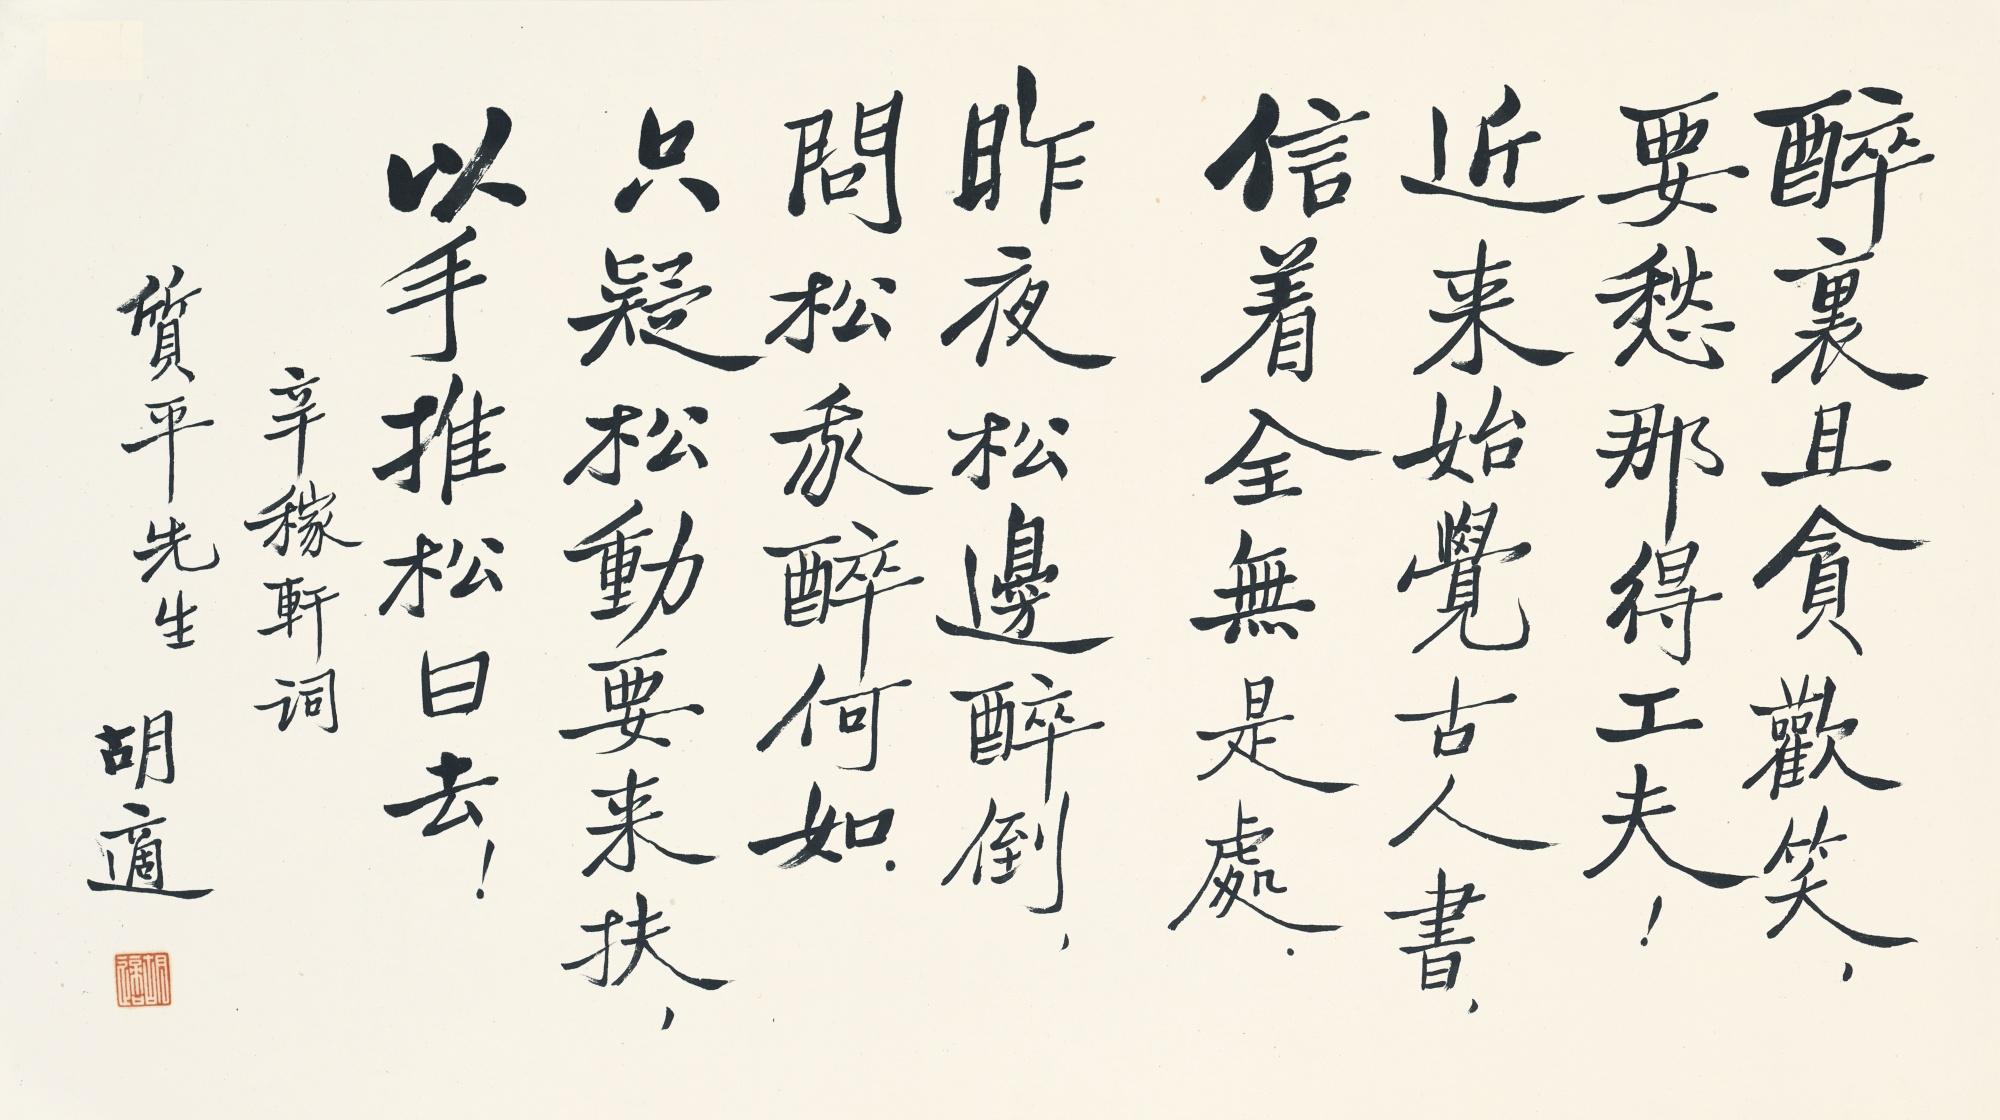 醉裏且貪歡笑，
要愁那得工夫！
近来始覺古人書，
信着全無是處．
昨夜松邊醉倒，
問松我醉何如．
只疑松動要来扶，
以手推松曰去！
辛稼軒詞
質平先生 胡適
胡適